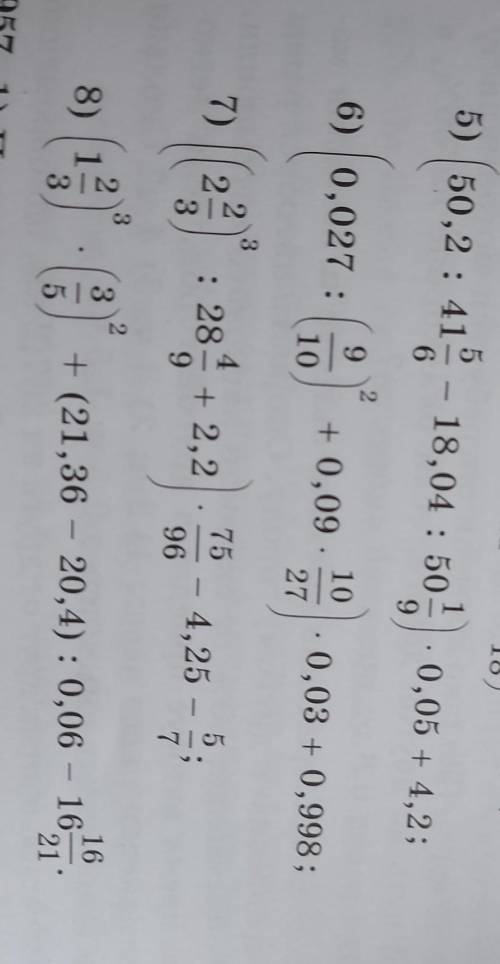 18)
5) (50,2 : 41 5/6 − 18,04 : 50 1/9) · 0,05 + 4,2;
6) (0,027 : (9/10)² + 0,09 · 10/27) · 0,03 + 0,998;
7) ((2 2/3)³ : 28 4/9 + 2,2) · 75/96 − 4,25 − 5/7;
8) (1 2/3)³ · (3/5)² + (21,36 − 20,4) : 0,06 − 16 16/21.
957 1)